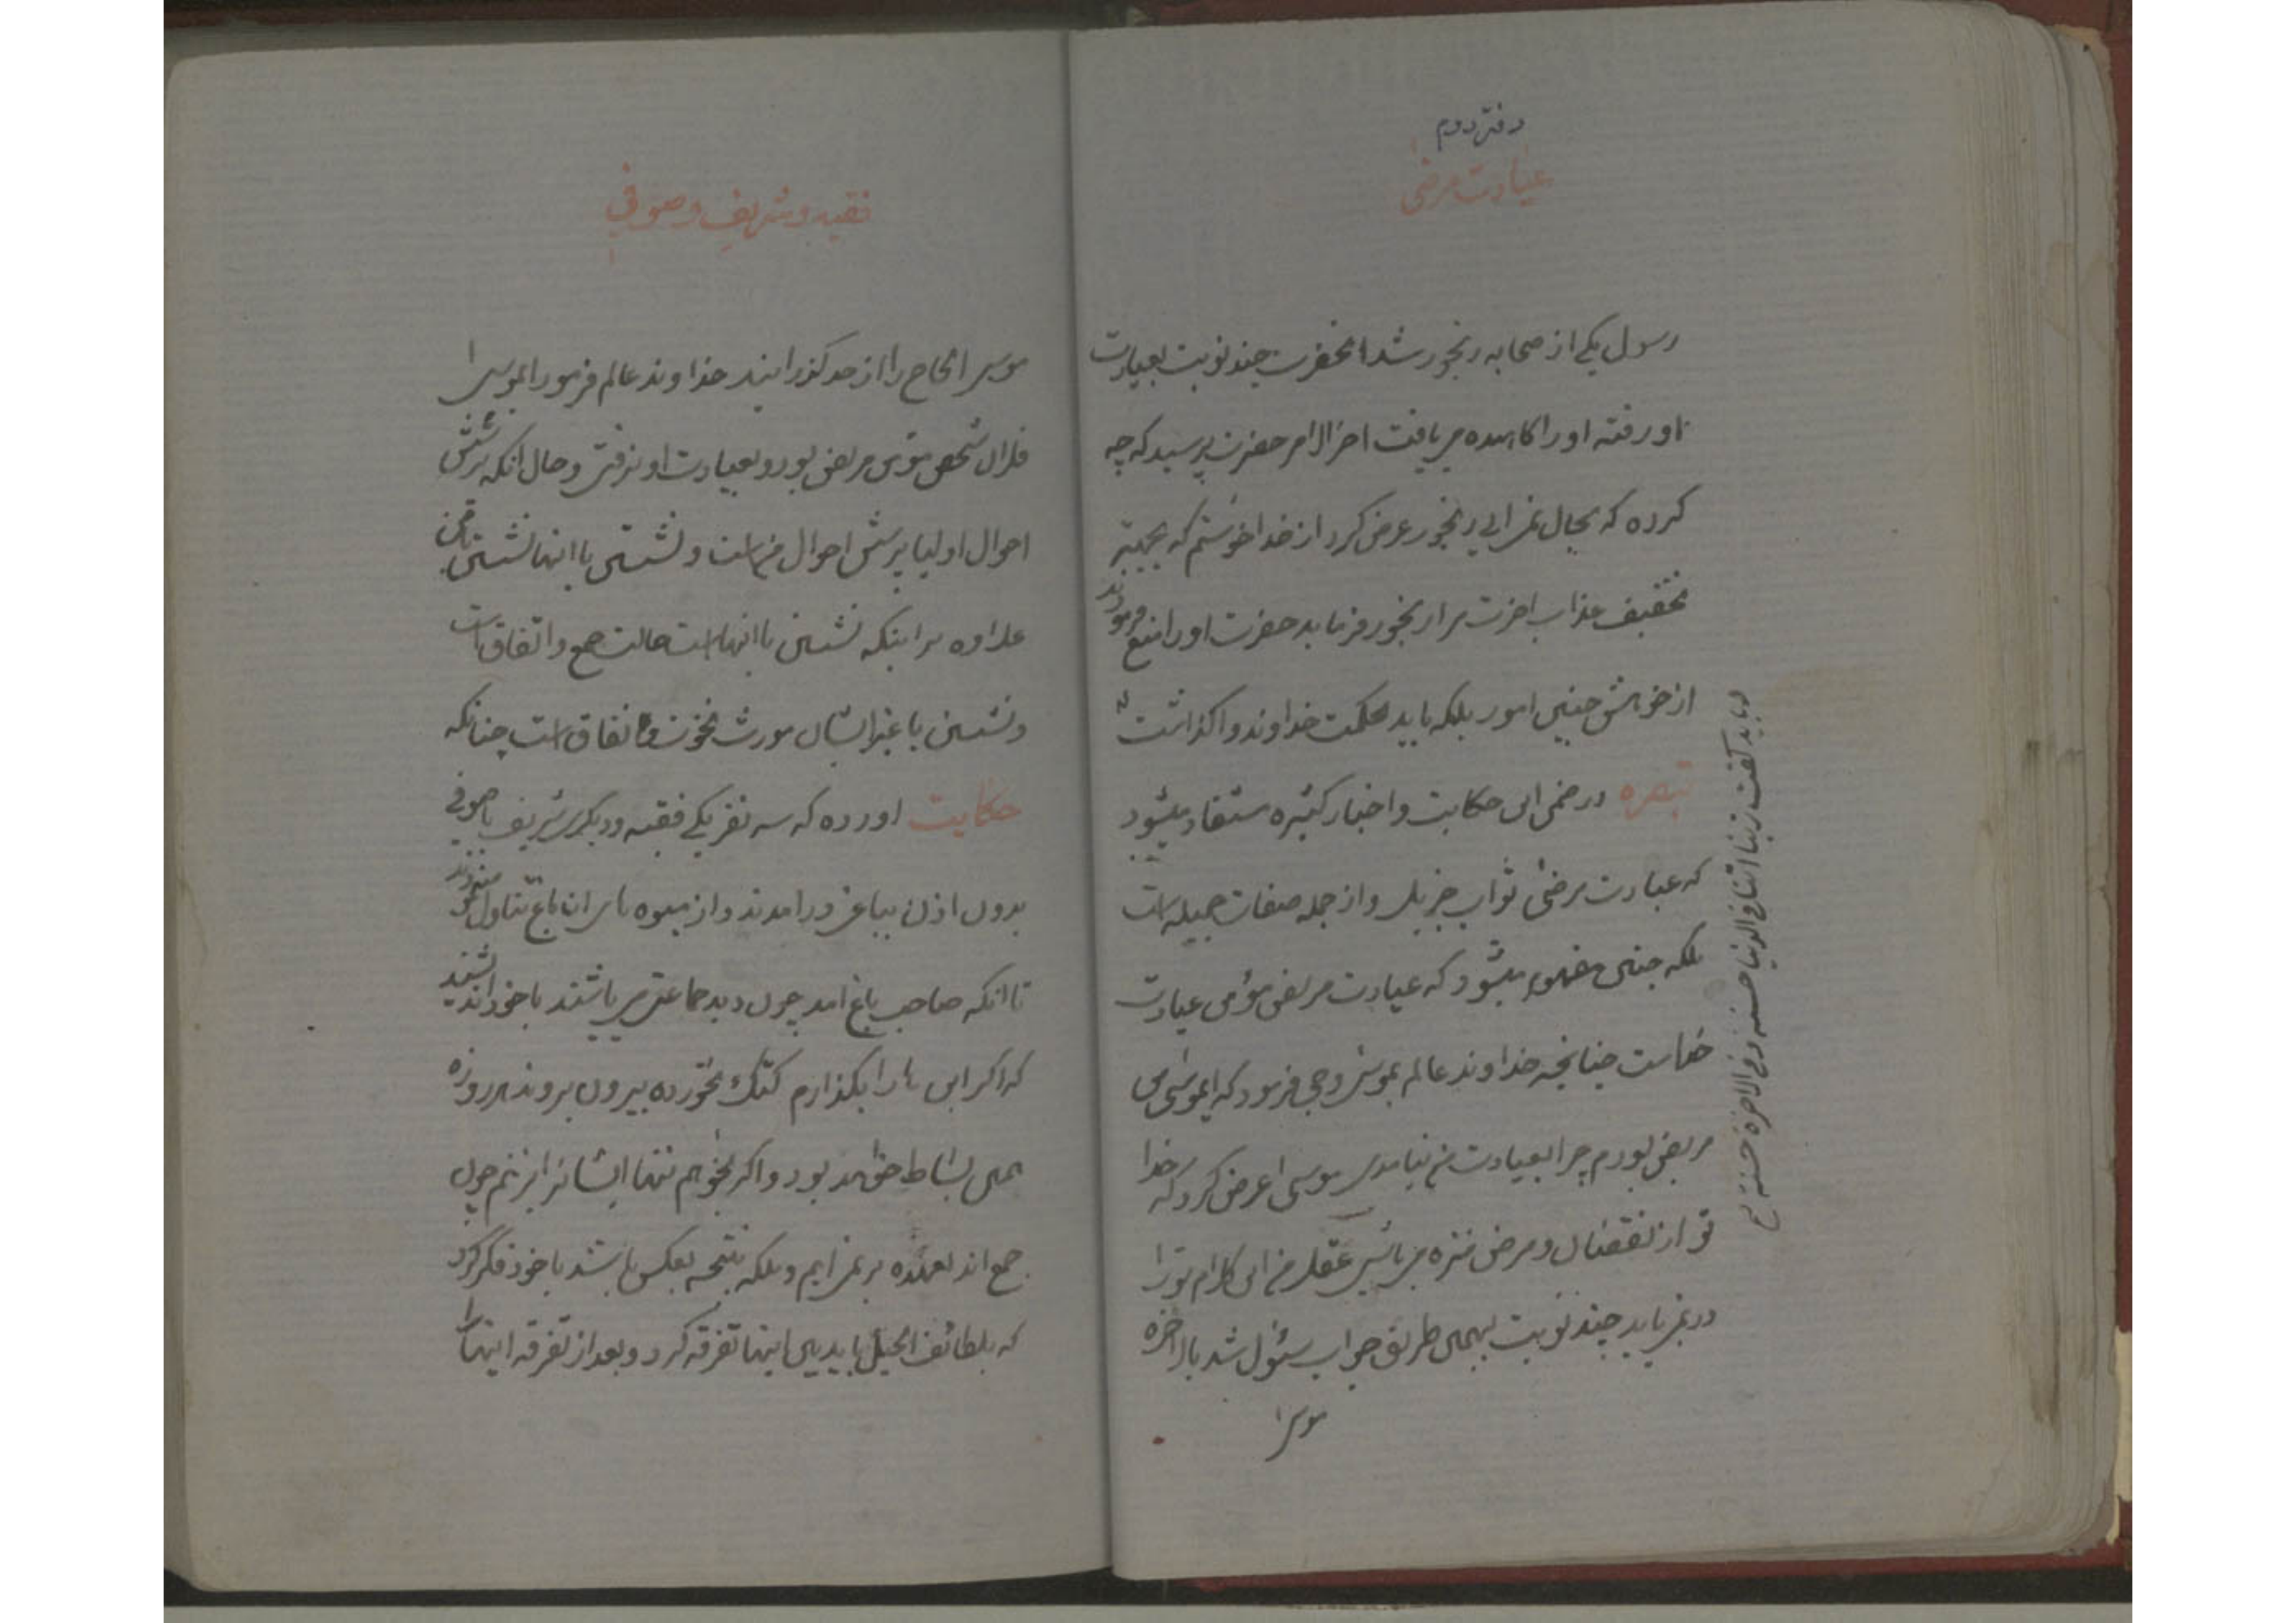 دفتر دوم
عیادت مرضی
رسول یکی از صحابه رنجور شد انحضرت چند نوبت بعیادت
او رفته او را کاهیده مییافت اخرالامر حضرت پرسید که چه
کرده که بحال نمی ایی رنجور عرض کرد از خدا خواستم که بجهته
تخفیف عذاب اخرت مرا رنجور فرماید حضرت او را منع فرمودند
از خواهش چنین امور بلکه باید بحکمت خداوند واگذاشت
تبصره در ضمن این حکایت و اخبار کثیره مستفاد میشود
که عیادت مرضی ثواب جزیل و از جمله صفات جمیله است
بلکه چنین مفهوم میشود که عیادت مریض مؤمن عیادت
خداست چنانچه خداوند عالم بموسی وحی فرمود که ایموسی من
مریض بودم چرا بعیادت من نیامدی موسی عرض کرد که خدا
تو از نقصان و مرض منزه میباشی عقل من این کلام تو را
در نمی یابد چند نوبت بهمین طریق جواب سئول شد بالاخره
موسی
و باید گفت ربنا اتنا فی الدنیا حسنه و فی الاخره حسنه
فقیه و شریف و صوفی
موسی الحاح را از حد گذرانید خداوند عالم فرمود ایموسی
فلان شخص مؤمن مریض بود و بعیادت او نرفتی و حال انکه پرسش
احوال اولیا پرسش احوال من است و نشستن با انها نشستن با من
علاوه بر اینکه نشستن با انها است حالت جمع و اتفاق است
و نشستن با غیر ایشان مورث نخوت و نفاق است چنانکه
حکایت اورده که سه نفر یکی فقیه و دیگری شریف با صوفی
بدون اذن بباغی در امدند و از میوه های ان باغ تناول مینمودند
تا انکه صاحب باغ امد چون دید جماعتی میباشند با خود اندیشید
که اگر این ها را بگذارم کتک نخورده بیرون بروند هر روزه
همین بساط خواهد بود و اگر بخواهم تنها ایشانرا بزنم چون
جمع اند از عهده بر نمی ایم و بلکه نتیجه بعکس باشد با خود فکر کرد
که بلطائف الحیل باید بین اینها تفرقه کرد و بعد از تفرقه اینها را